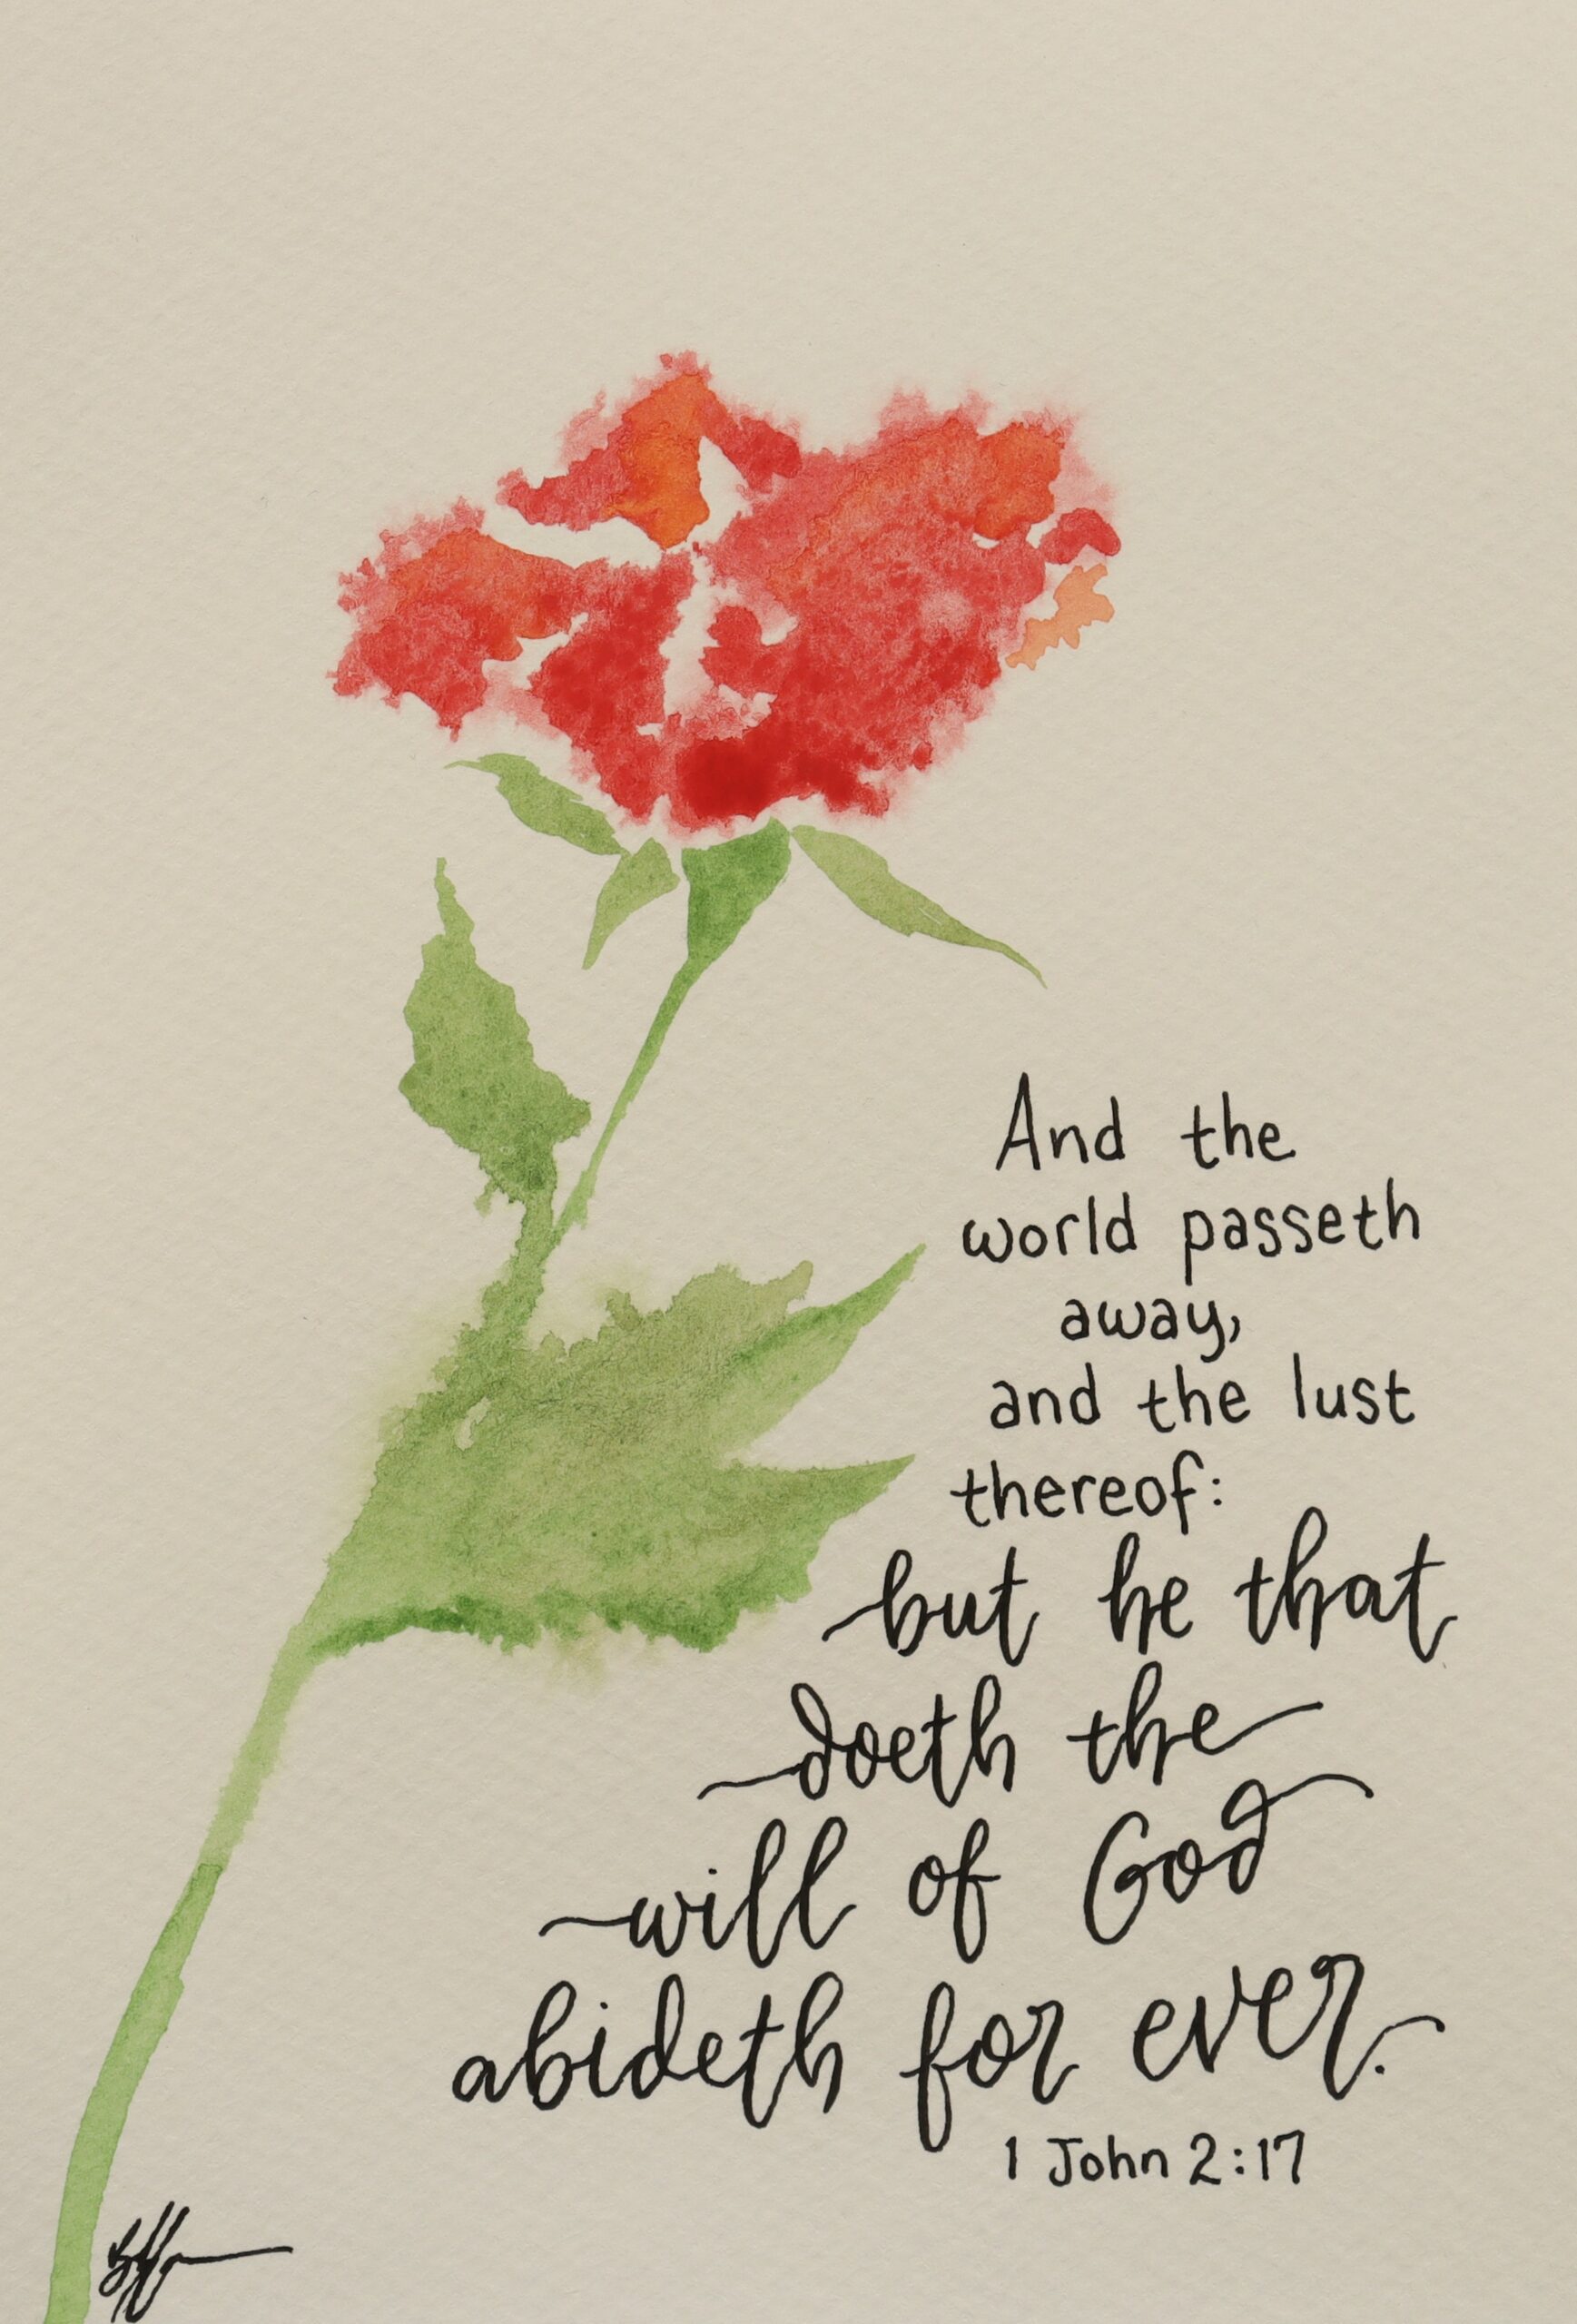 And the
world passeth
away,
and the lust
thereof:
but he that
doeth the
will of God
abideth for ever.
1 John 2:17